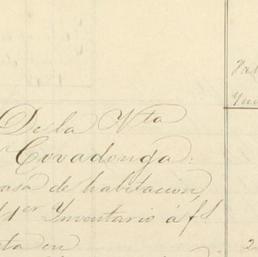 De la Vta
Covadonga.
casa de habitación
1er Inventario á f
en